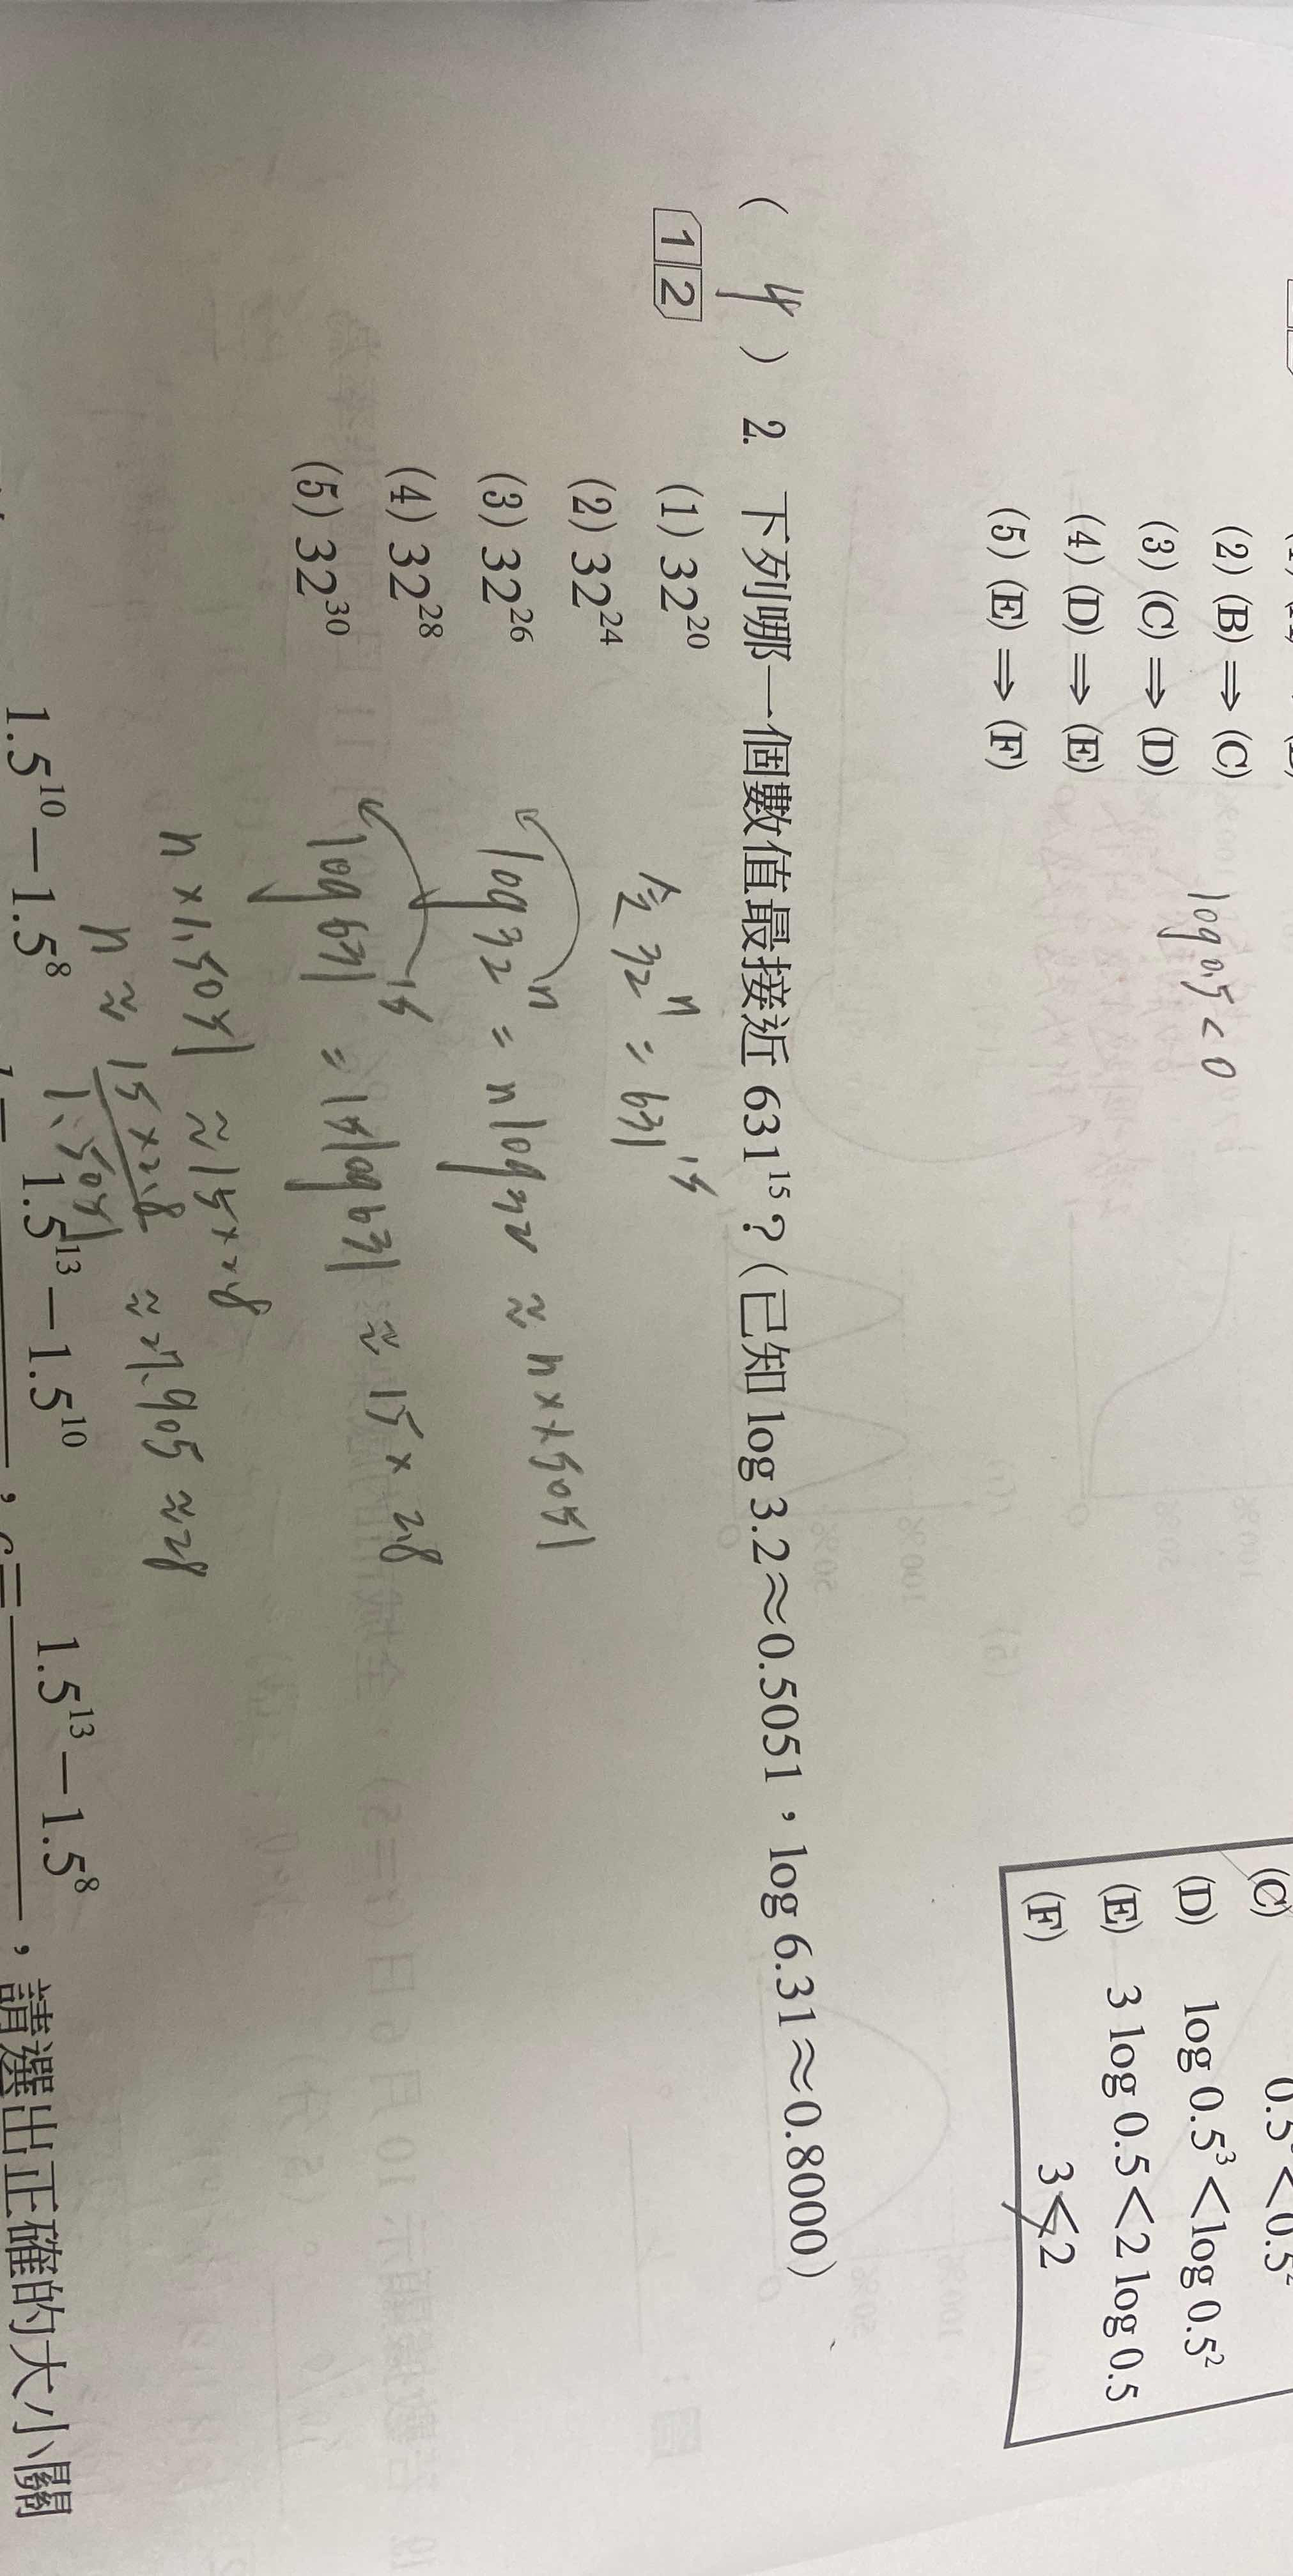 (2) (B) ⇒ (C)
(3) (C) ⇒ (D)
(4) (D) ⇒ (E)
(5) (E) ⇒ (F)
log 0.5 < 0
(C)
(D) log 0.5³ < log 0.5²
(E) 3 log 0.5 < 2 log 0.5
(F) 3 < 2
( 4 ) 2. 下列哪一個數值最接近 631¹⁵？(已知 log 3.2≈0.5051，log 6.31≈0.8000)
1 2
(1) 32²⁰
(2) 32²⁴
(3) 32²⁶
(4) 32²⁸
(5) 32³⁰
令 32ⁿ = 631¹⁵
log 32ⁿ = n log 32 ≈ n × 1.5051
log 631¹⁵ = 15 log 631 ≈ 15 × 2.8
n × 1.5051 ≈ 15 × 2.8
n ≈ 15 × 2.8 / 1.5051 ≈ 27.905 ≈ 28
1.5¹⁰ − 1.5⁸
1.5¹³ − 1.5¹⁰
，c =
1.5¹³ − 1.5⁸
，請選出正確的大小關